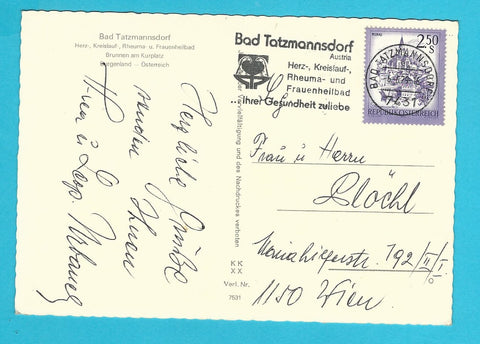 Bad Tatzmannsdorf
Herz-, Kreislauf-, Rheuma- u. Frauenheilbad
Brunnen am Kurplatz
Burgenland - Österreich
Herzliche Grüße
senden Ihnen
Hans u. Leop. Urbanek
Bad Tatzmannsdorf
Austria
Herz-, Kreislauf-,
Rheuma- und
Frauenheilbad
...Ihrer Gesundheit zuliebe
2.50
S
BAD TATZMANNSDORF
7431
REPUBLIK ÖSTERREICH
der Vervielfältigung und des Nachdruckes verboten
KK
XX
Verl. Nr.
7531
Frau u Herrn
Blöchl
Mariahilferstr. 192/II/I
1150 Wien